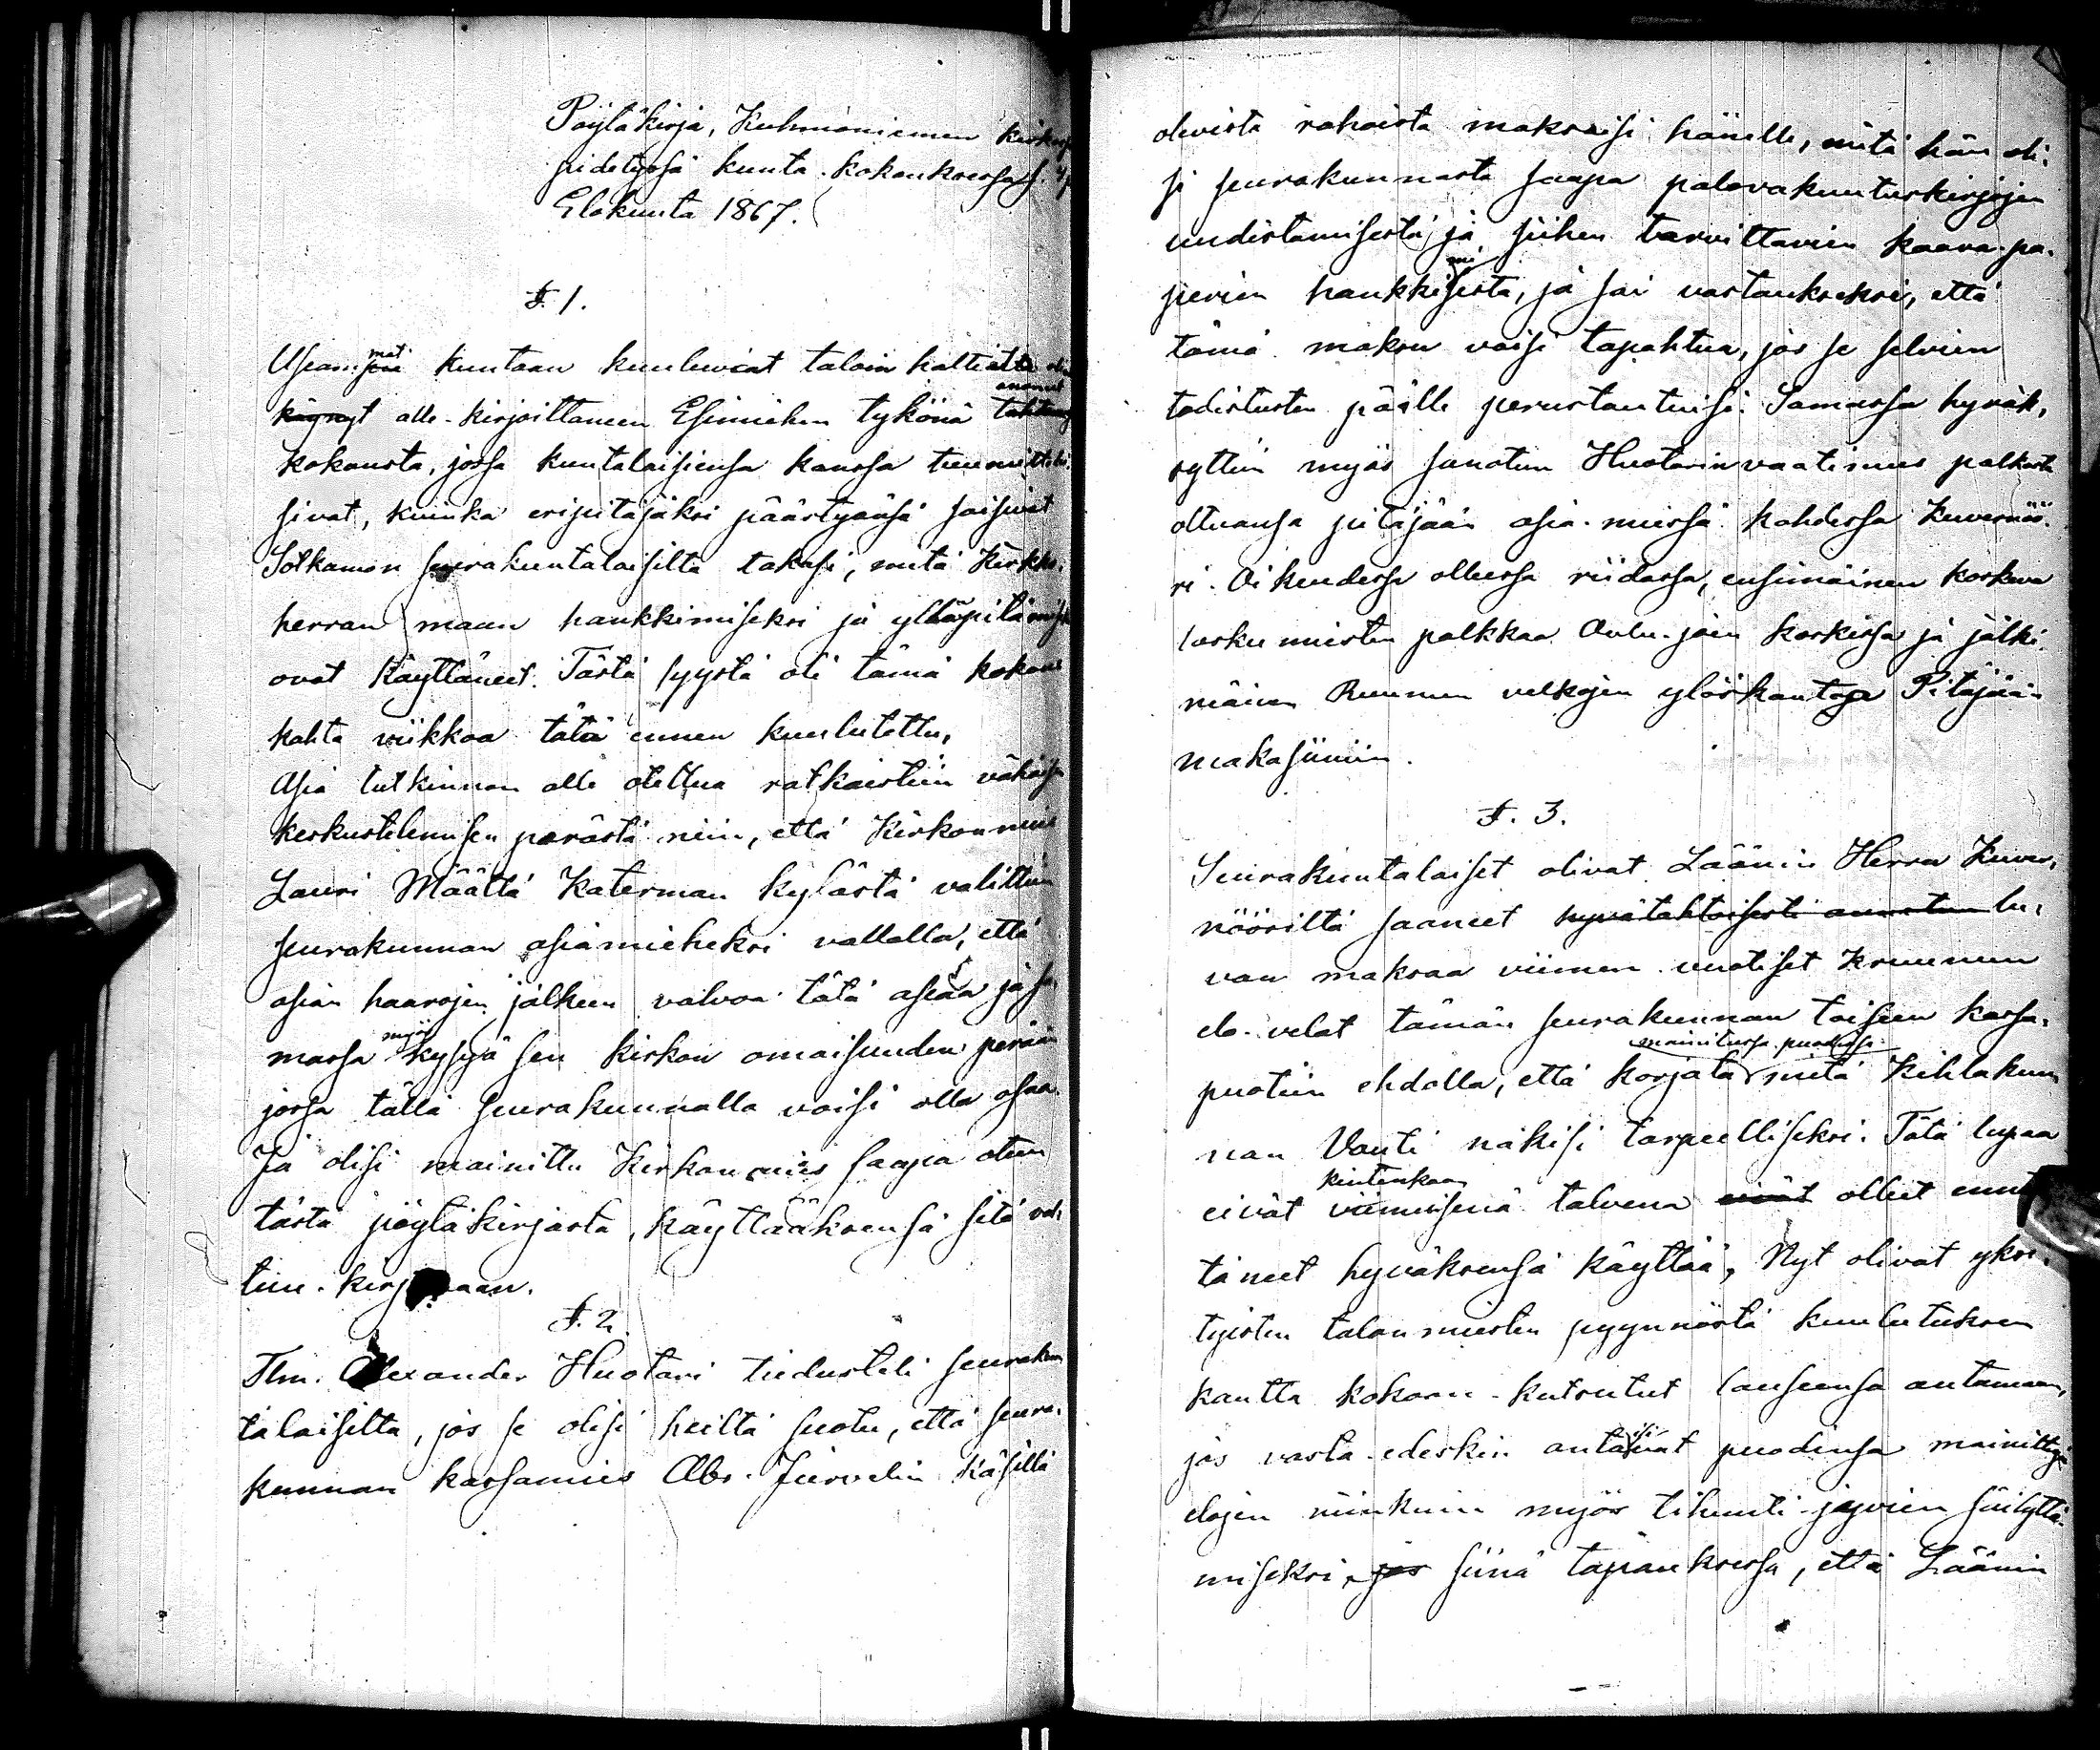 Pöytäkirja, Kuhmoniemen
pidetyssä kunta-kokouksessa
Elokuuta 1867.
§. 1.
Useammat kuntaan kuuluwat taloin haltiatta
anonut
käynyt alle-kirjoittaneen Esimiehen tykönä
kokousta, jossa kuntalaisiensa kanssa tuumitteli-
sivat, kuinka eripitäjäksi päästyänsä saisivat
Sotkamon seurakuntalaisilta takasi, mitä Kirkko-
herran maan hankkimiseksi ja ylläpitämiseksi
ovat käyttäneet. Tästä syystä oli tämä kokous
kahta viikkoa tätä ennen kuulutettu,
Asia tutkinnon alle otettua ratkaistiin vähäisen
keskustelemisen perästä niin, että Kirkonmies
Lauri Määttä Katerman kylästä valittiin
seurakunnan asiamieheksi vallalla, että
asian haarojen jälkeen valvoa tätä asiaa ja sa-
massa myös kysyä sen kirkon omaisuuden perään
jossa tällä seurakunnalla voisi olla osaa.
Ja olisi mainittu Kirkonmies saapa otteen
tästä pöytäkirjasta, käyttääksensä sitä val-
tuus-kirjanaan.
§. 2.
Tlm. Alexander Huotari tiedusteli seurakun
talaisilta, jos se olisi heiltä suotu, että seura-
kunnan kassamies Abr. Juvelin käsillä
olevista rahoista maksaisi hänelle, mitä hän oli-
si seurakunnasta saapa palovakuutuskirjojen
uudistamisesta ja siihen tarvittavien kaava-pa-
perien hankkimisesta, ja sai vastaukseksi, että
tämä maksu voisi tapahtua, jos se selvien
todistusten päälle perustautuisi. Samassa hyväk-
syttiin myös sanotun Huotarin vaatimus palkasta
oltuansa pitäjään asia-miessä kahdessa Kuvernöö-
ri-Oikeudessa olleessa riidassa, ensimäinen koskeva
laskumiesten palkkaa Oulu-joen koskissa ja jälki-
mäinen Ruunun velkojen ylöskantoa Pitäjään
makasiiniin.
§. 3.
Seurakuntalaiset olivat Läänin Herra Kuver-
nööriltä saaneet hyväntahtoisesti annetun lu-
van maksaa viimen vuotiset Kruunun
elo-velat tämän seurakunnan toiseen kassa-
puotiin ehdolla, että korjata mainitussa puodissa mitä Kihlakun
nan Vouti näkisi tarpeelliseksi. Tätä lupaa
eivät kuitenkaan viimeisenä talvena eivät olleet ennät
täneet hyväksensä käyttää, Nyt olivat yksi-
tyisten talon miesten pyynnöstä kuulutuksen
kautta kokoon-kutsutut lauseensa antamaan,
jos vasta-edeskin antaisivat puodinsa mainittujen
elojen niinkuin myös tihunti-jyvien säilyttä-
miseksi, jos siinä tapauksessa, että Läänin